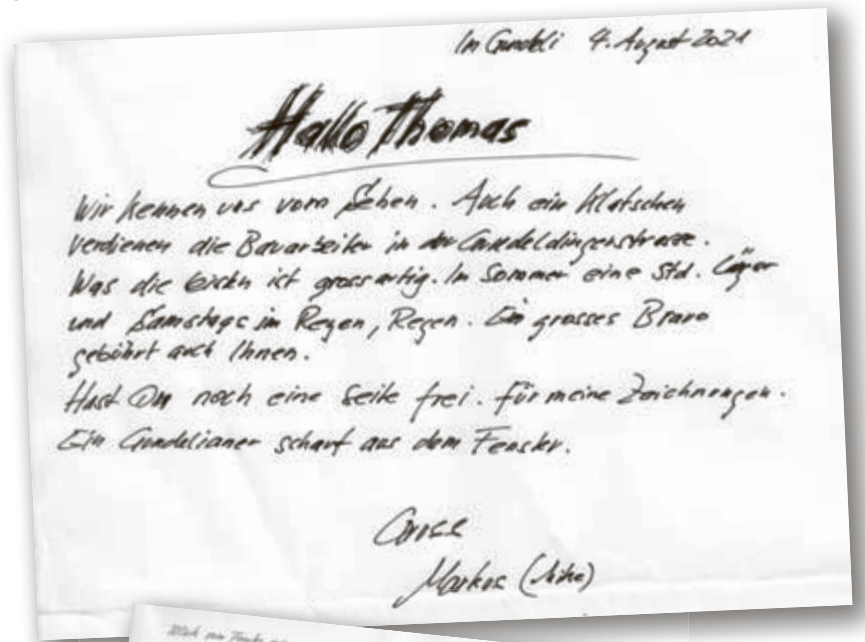 Im Gundeli 4. August 2021
Hallo Thomas
Wir kennen uns vom Sehen. Auch ein Klatschen
verdienen die Bauarbeiter in der Gundeldingerstrasse.
Was die leisten ist grossartig. Im Sommer eine Std. länger
und Samstags im Regen, Regen. Ein grosses Bravo
gebührt auch Ihnen.
Hast Du noch eine Seite frei. für meine Zeichnungen.
Ein Gundelianer schaut aus dem Fenster.
Gruss
Markus